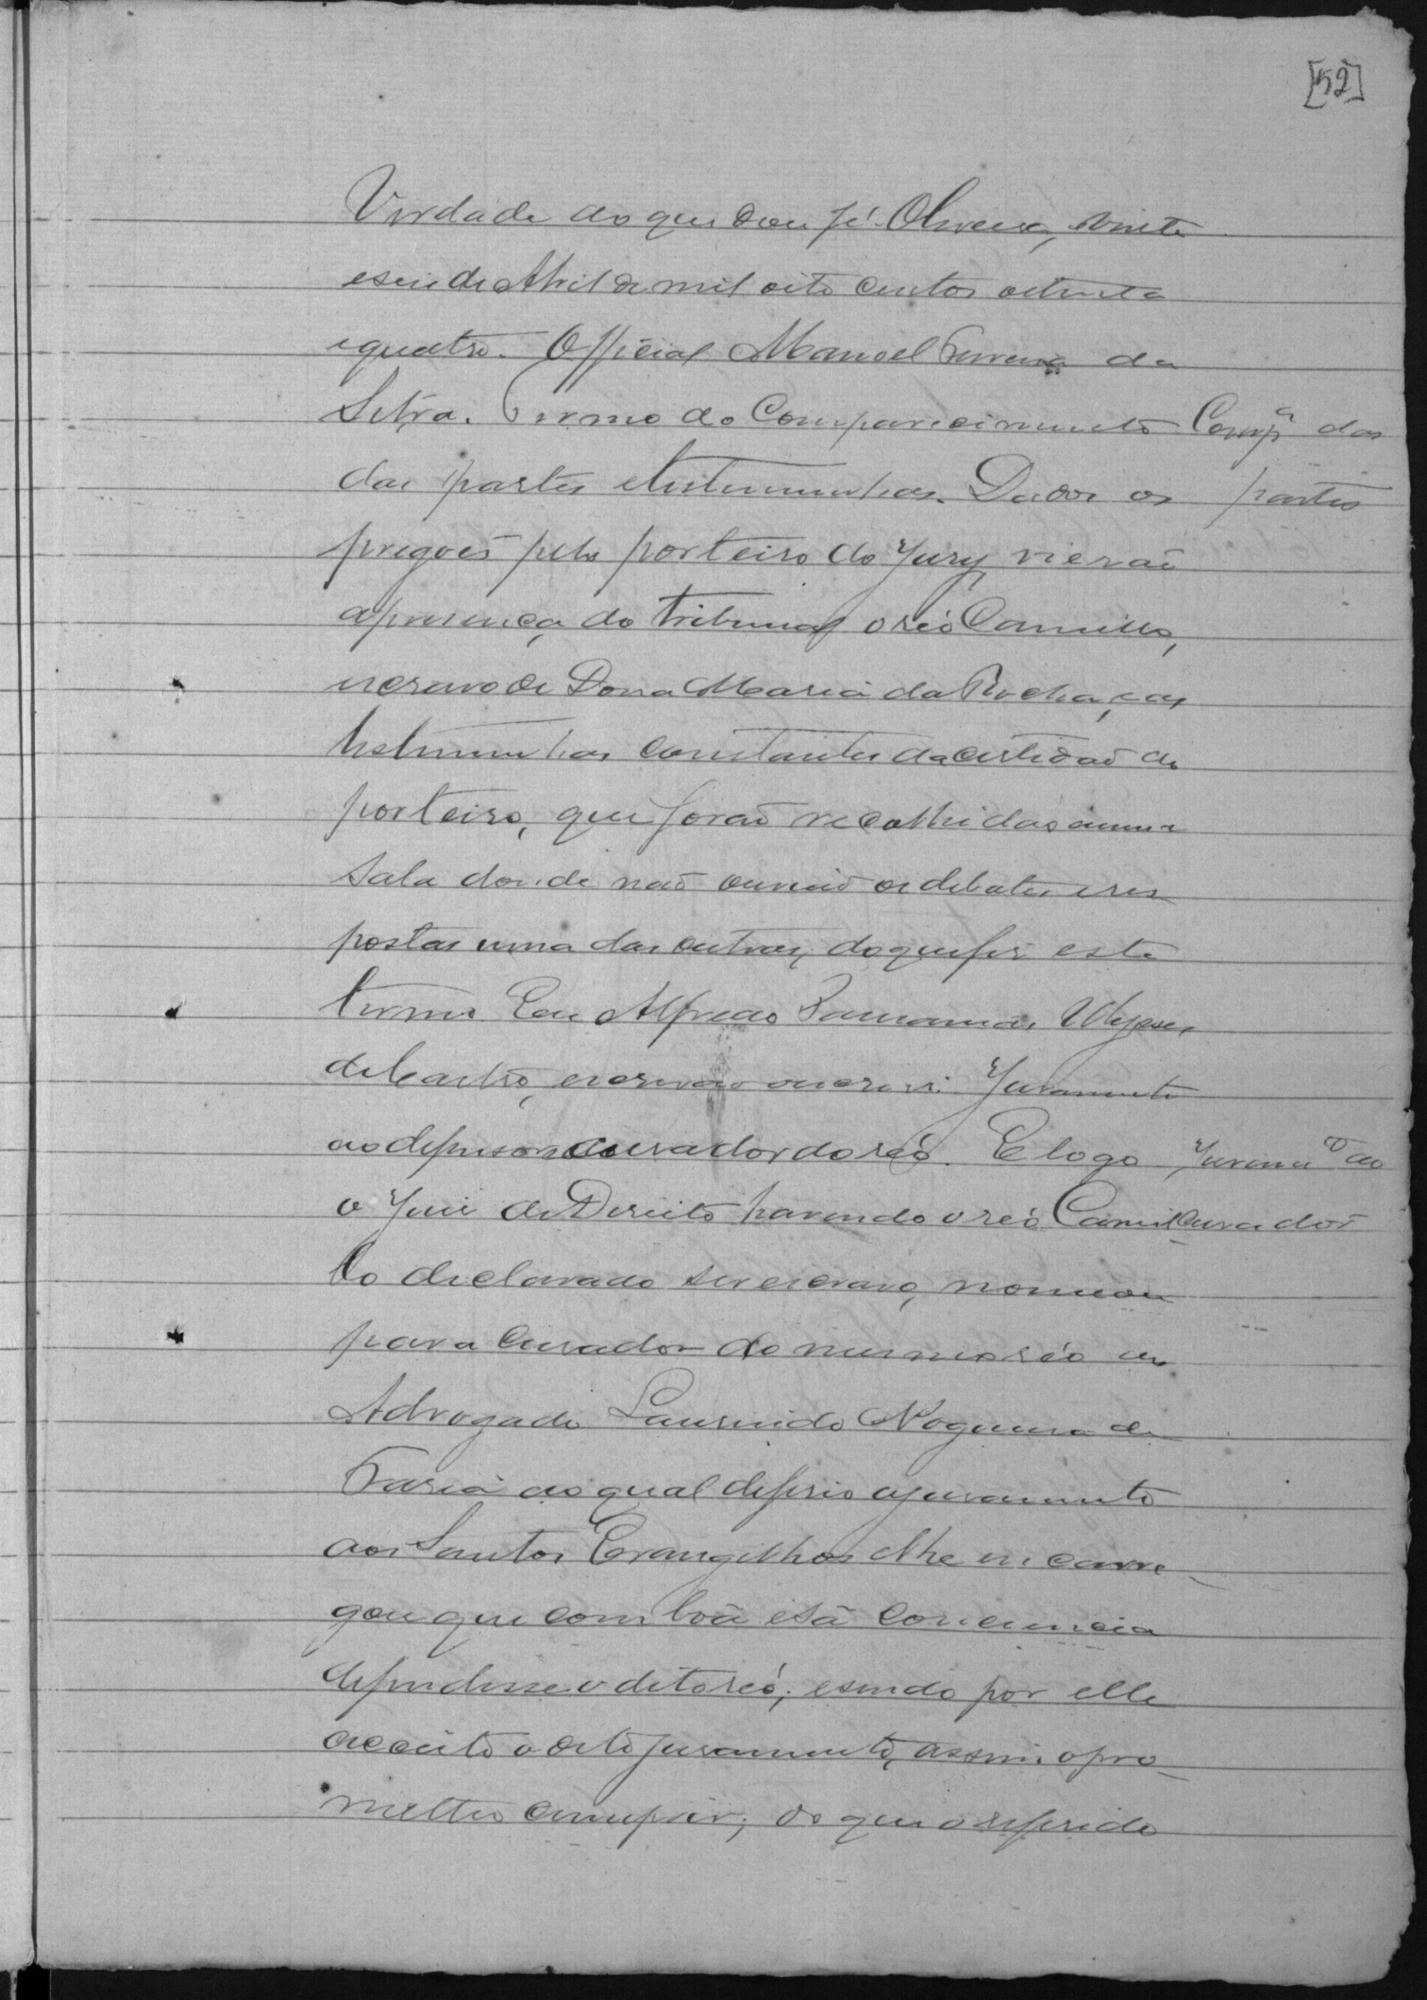 [52]
Verdade do que dou fé. Oliveira, vinte
e seis de Abril de mil oito centos oitenta
e quatro. Official Manoel Ferreira da
Silva. Termo do Comparecimento Comp.º das
das partes e testemunhas. Dados os partes
pregoês pelo porteiro do Jury, vierão
a presença do tribunal o réo Camillo,
escravo de Dona Maria da Rocha, e as
testemunhas constantes da certidão do
porteiro, que forão recolhidas a uma
sala donde não ouvião os debates e res
postas uma das outras, do que fiz este
termo. Eu Alfredo Ulysses
de Castro, escrivão o escrevi. Juramento
ao defensor e curador do réo. E logo Juram.to ao
o Juiz de Direito havendo o réo Camil Curador
lo declarado ser escravo, nomeou
para curador do mesmo réo ao
Advogado Laurindo Nogueira de
Faria ao qual deferio o juramento
aos Santos Evangelhos e lhe encarre-
gou que com boa e sã consciencia
defendesse o dito réo; e sendo por elle
acceito o dito juramento, assim o pro-
metteo cumprir; do que o referido